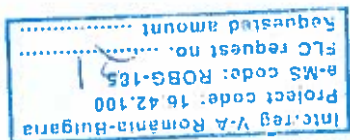 Interreg V-A România-Bulgaria
Project code: 16.42.100
e-MS code: ROBG-185
FLC request no. ............ 15
Requested amount ............